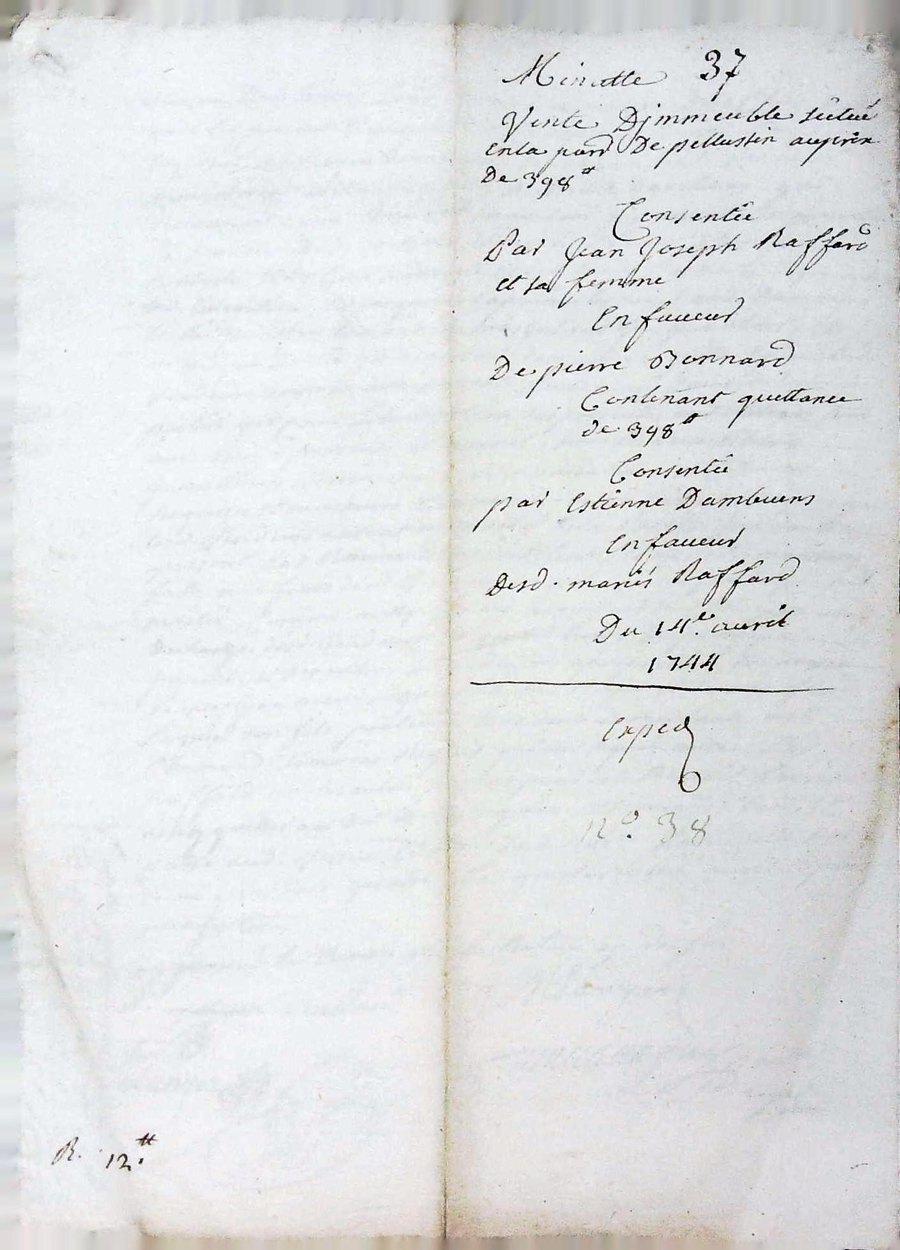 Minutte 37
Vente Djmmeuble scitué
En la parr De pellussin au prix
De 398#
Consentie
Par Jean Joseph Raffard
et sa femme
En faveur
De pierre Bonnard
Contenant quittance
de 398#
Consentie
par Estienne Dambuens
en faveur
Desd. mariés Raffard
Du 14e. avril
1744
Exped
n°. 38
R. 12#.